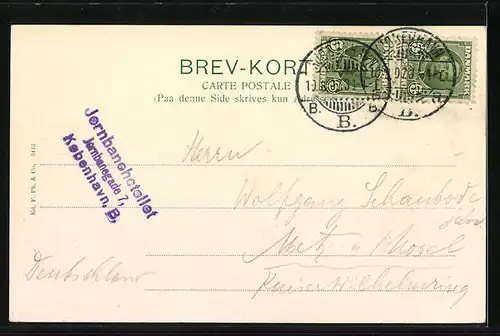 BREV-KORT
CARTE POSTALE
(Paa denne Side skrives kun
Jernbanehotellet
Jernbanegade 7,
København, B.
Ed. F. Ph. & Co.
Herrn
Wolfgang Schaubode
Metz a Mosel
Kaiser Wilhelmring
Deutschland
DANMARK
B.
B.
B.